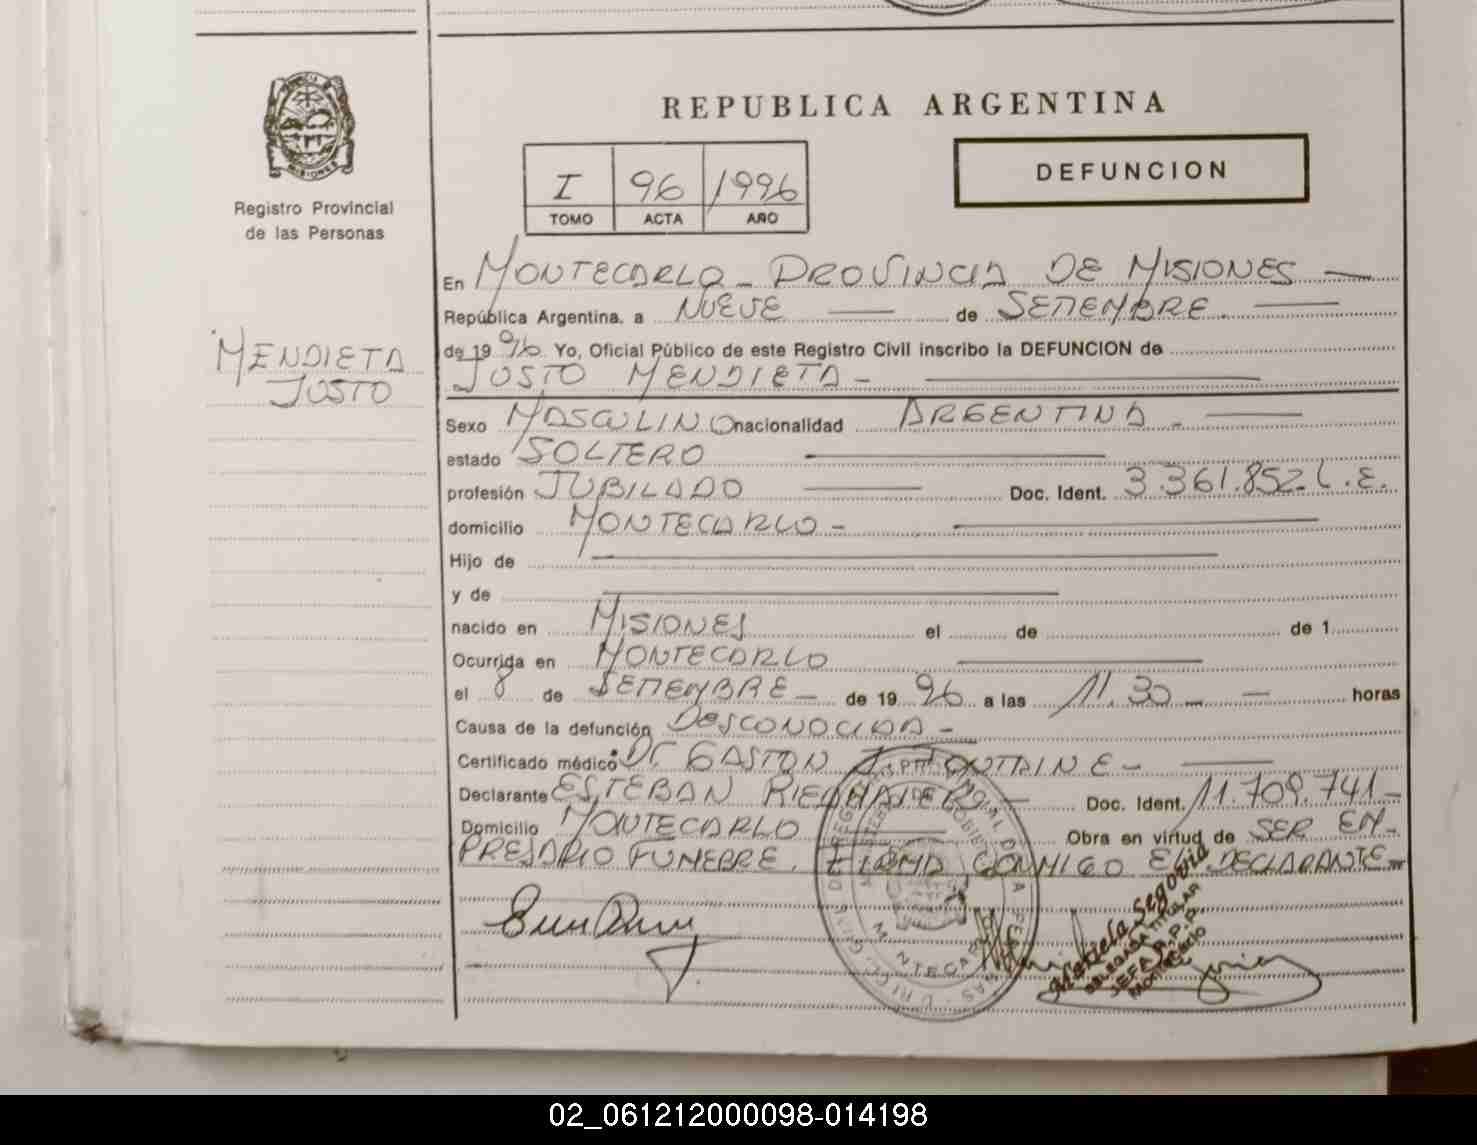 REPUBLICA ARGENTINA
MISIONES
Registro Provincial
de las Personas
I 96 1996
TOMO ACTA AÑO
DEFUNCION
MENDIETA
JUSTO
En MONTECARLO - PROVINCIA DE MISIONES
República Argentina, a NUEVE de SETIEMBRE
de 1996 Yo, Oficial Público de este Registro Civil inscribo la DEFUNCION de
JUSTO MENDIETA -
Sexo MASCULINO nacionalidad ARGENTINA -
estado SOLTERO
profesión JUBILADO Doc. Ident. 3.361.852 L.E.
domicilio MONTECARLO -
Hijo de
y de
nacido en MISIONES el de de 1
Ocurrida en MONTECARLO
el 8 de SETIEMBRE - de 1996 a las 11.30 - horas
Causa de la defunción DESCONOCIDA -
Certificado médico Dr GASTON -
Declarante ESTEBAN Doc. Ident. 11.709.741 -
Domicilio MONTECARLO Obra en virtud de SER EM-
PRESARIO FUNEBRE. FIRMA CONMIGO EL DECLARANTE
Graciela Segovia
DELEGADA TITULAR
JEFA R.P.P.
MONTECARLO
02_061212000098-014198